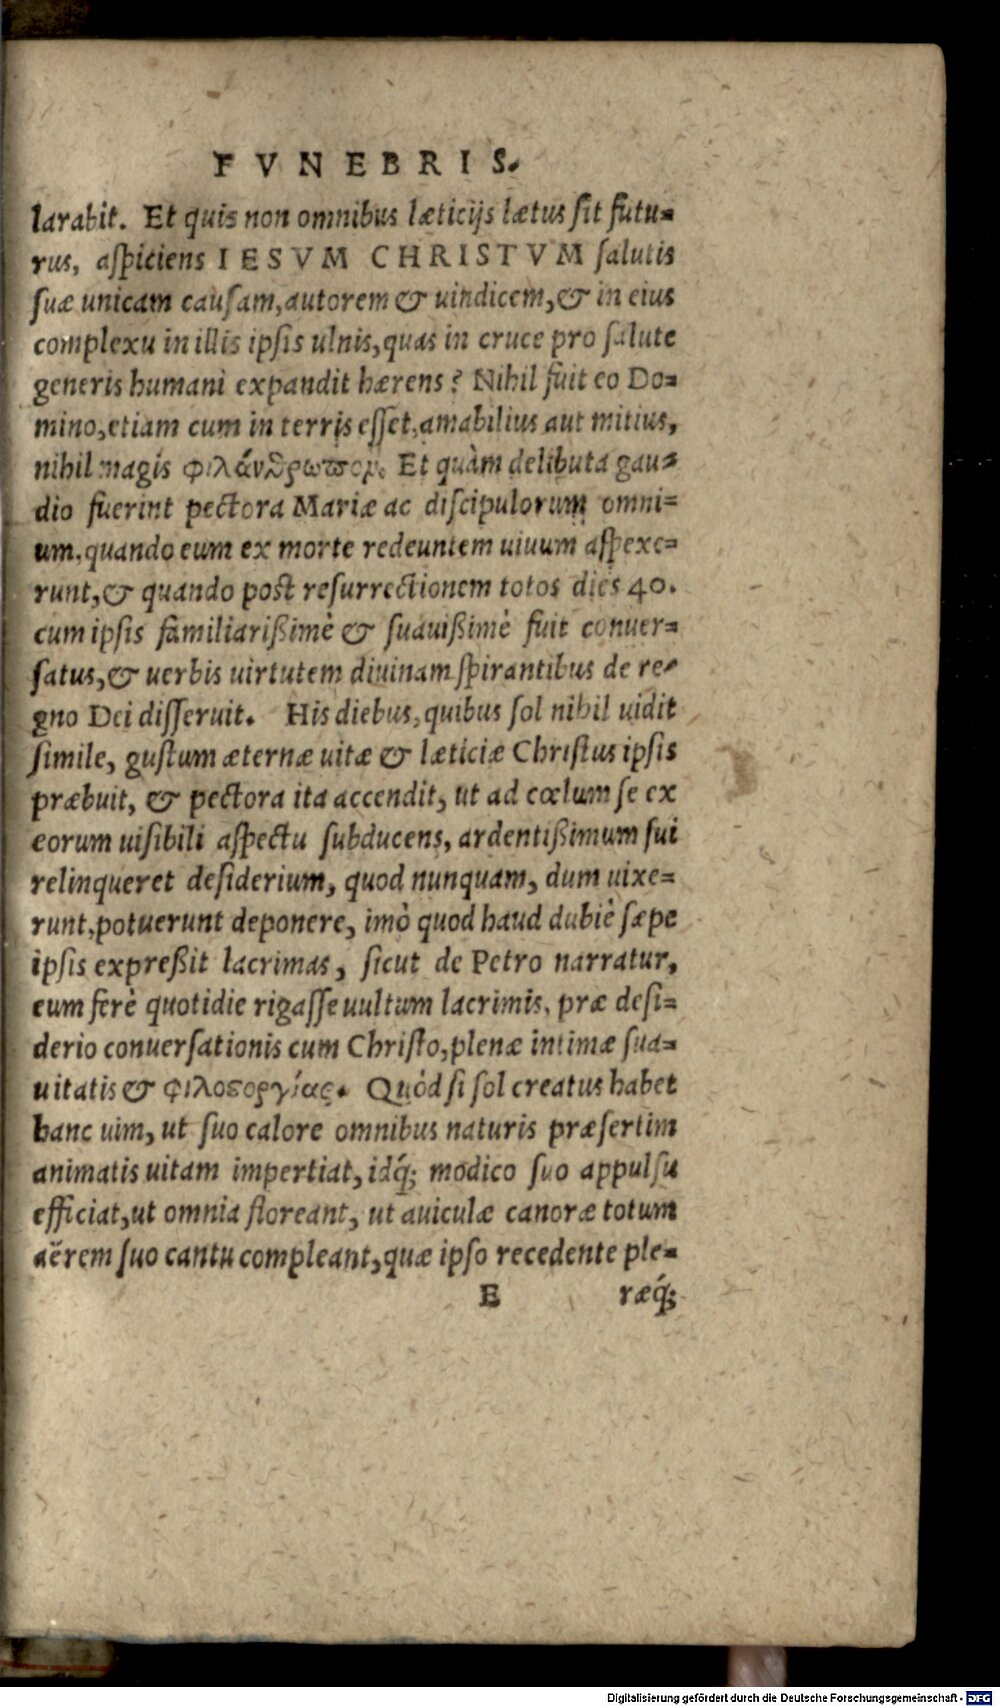 FVNEBRIS.
larabit. Et quis non omnibus læticijs lætus sit futu-
rus, aspiciens IESVM CHRISTVM salutis
suæ unicam causam, autorem & uindicem, & in eius
complexu in illis ipsis ulnis, quas in cruce pro salute
generis humani expandit hærens? Nihil fuit eo Do-
mino, etiam cum in terris esset, amabilius aut mitius,
nihil magis φιλάνθρωπον. Et quàm delibuta gau-
dio fuerint pectora Mariæ ac discipulorum omni-
um, quando eum ex morte redeuntem uiuum aspexe-
runt, & quando post resurrectionem totos dies 40.
cum ipsis familiarißimè & suauißimè fuit conuer-
satus, & uerbis uirtutem diuinam spirantibus de re-
gno Dei disseruit. His diebus, quibus sol nihil uidit
simile, gustum æternæ uitæ & læticiæ Christus ipsis
præbuit, & pectora ita accendit, ut ad cœlum se ex
eorum uisibili aspectu subducens, ardentißimum sui
relinqueret desiderium, quod nunquam, dum uixe-
runt, potuerunt deponere, imò quod haud dubiè sæpe
ipsis expreßit lacrimas, sicut de Petro narratur,
eum ferè quotidie rigasse uultum lacrimis, præ desi-
derio conuersationis cum Christo, plenæ intimæ sua-
uitatis & φιλοϛοργίας. Quòd si sol creatus habet
hanc uim, ut suo calore omnibus naturis præsertim
animatis uitam impertiat, idq́; modico suo appulsu
efficiat, ut omnia floreant, ut auiculæ canoræ totum
aërem suo cantu compleant, quæ ipso recedente ple-
E ræq́;
Digitalisierung gefördert durch die Deutsche Forschungsgemeinschaft - DFG